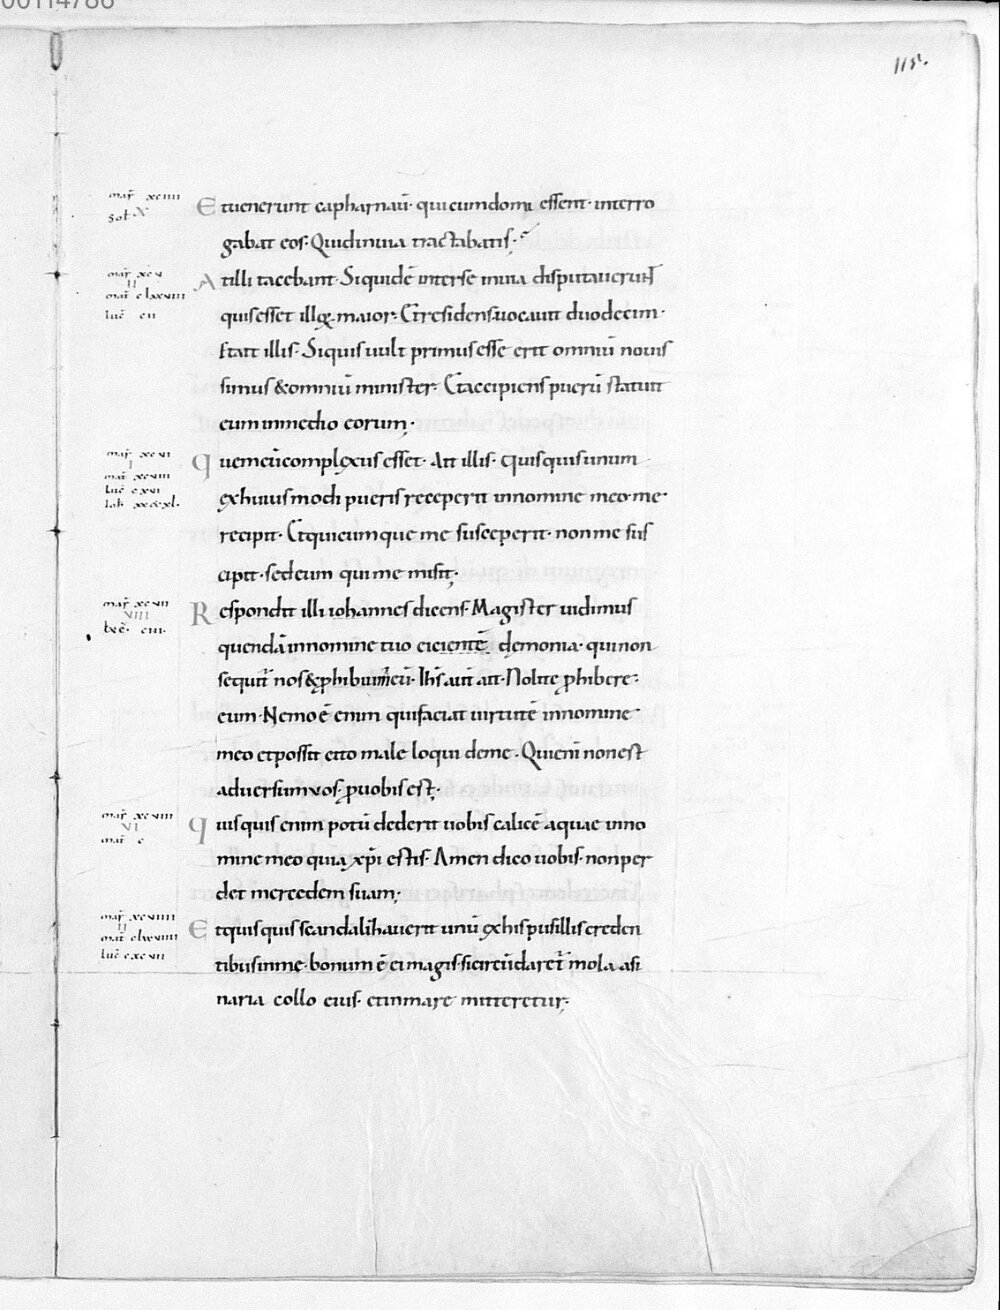 00114786
115.
mar̄ xciiii
sol X
Et uenerunt capharnaū· qui cum domi essent· interro
gabat eos· Quid in uia tractabatis;
mar̄ xcv
II
mat̄ clxxviii
luc̄ cii
At illi tacebant· Siquidē inter se in uia disputauerunt
quis esset illorum maior· Et residens uocauit duodecim·
Et ait illis· Si quis uult primus esse erit omniū nouis
simus & omniū minister· Et accipiens puerū statuit
eum in medio eorum;
mar̄ xcvi
I
mat̄ xcviii
luc̄ cxvi
Ioh̄ xx&xl·
quem cū complexus esset· Ait illis· Quisquis unum
ex huius modi pueris receperit in nomine meo· me·
recipit· Et quicumque me susceperit· non me sus
cipit· sed eum qui me misit;
mar̄ xcvii
VIII
luc̄· ciii·
Respondit illi iohannes dicens· Magister uidimus
quendā in nomine tuo eicientē demonia· qui non
sequit̄ nos & ꝓhibuimus eū· Ihs̄ aūt ait· Nolite ꝓhibere·
eum· Nemo ē enim qui faciat uirtutē in nomine
meo et possit cito male loqui de me· Qui eni̅ non est
aduersum uos· ꝓ uobis est;
mar̄ xcviii
VI
mat̄ c
quisquis enim potū dederit uobis calicē aquae in no
mine meo quia xp̄i estis· Amen dico uobis· non per
det mercedem suam;
mar̄ xcviiii
II
mat̄ clxxviiii
luc̄ cxcvii
Et quisquis scandalihauerit unū ex his pusillis creden
tibus in me· bonum ē ei magis· si circūdaret̄ mola asi
naria collo eius· et in mare mitteretur;